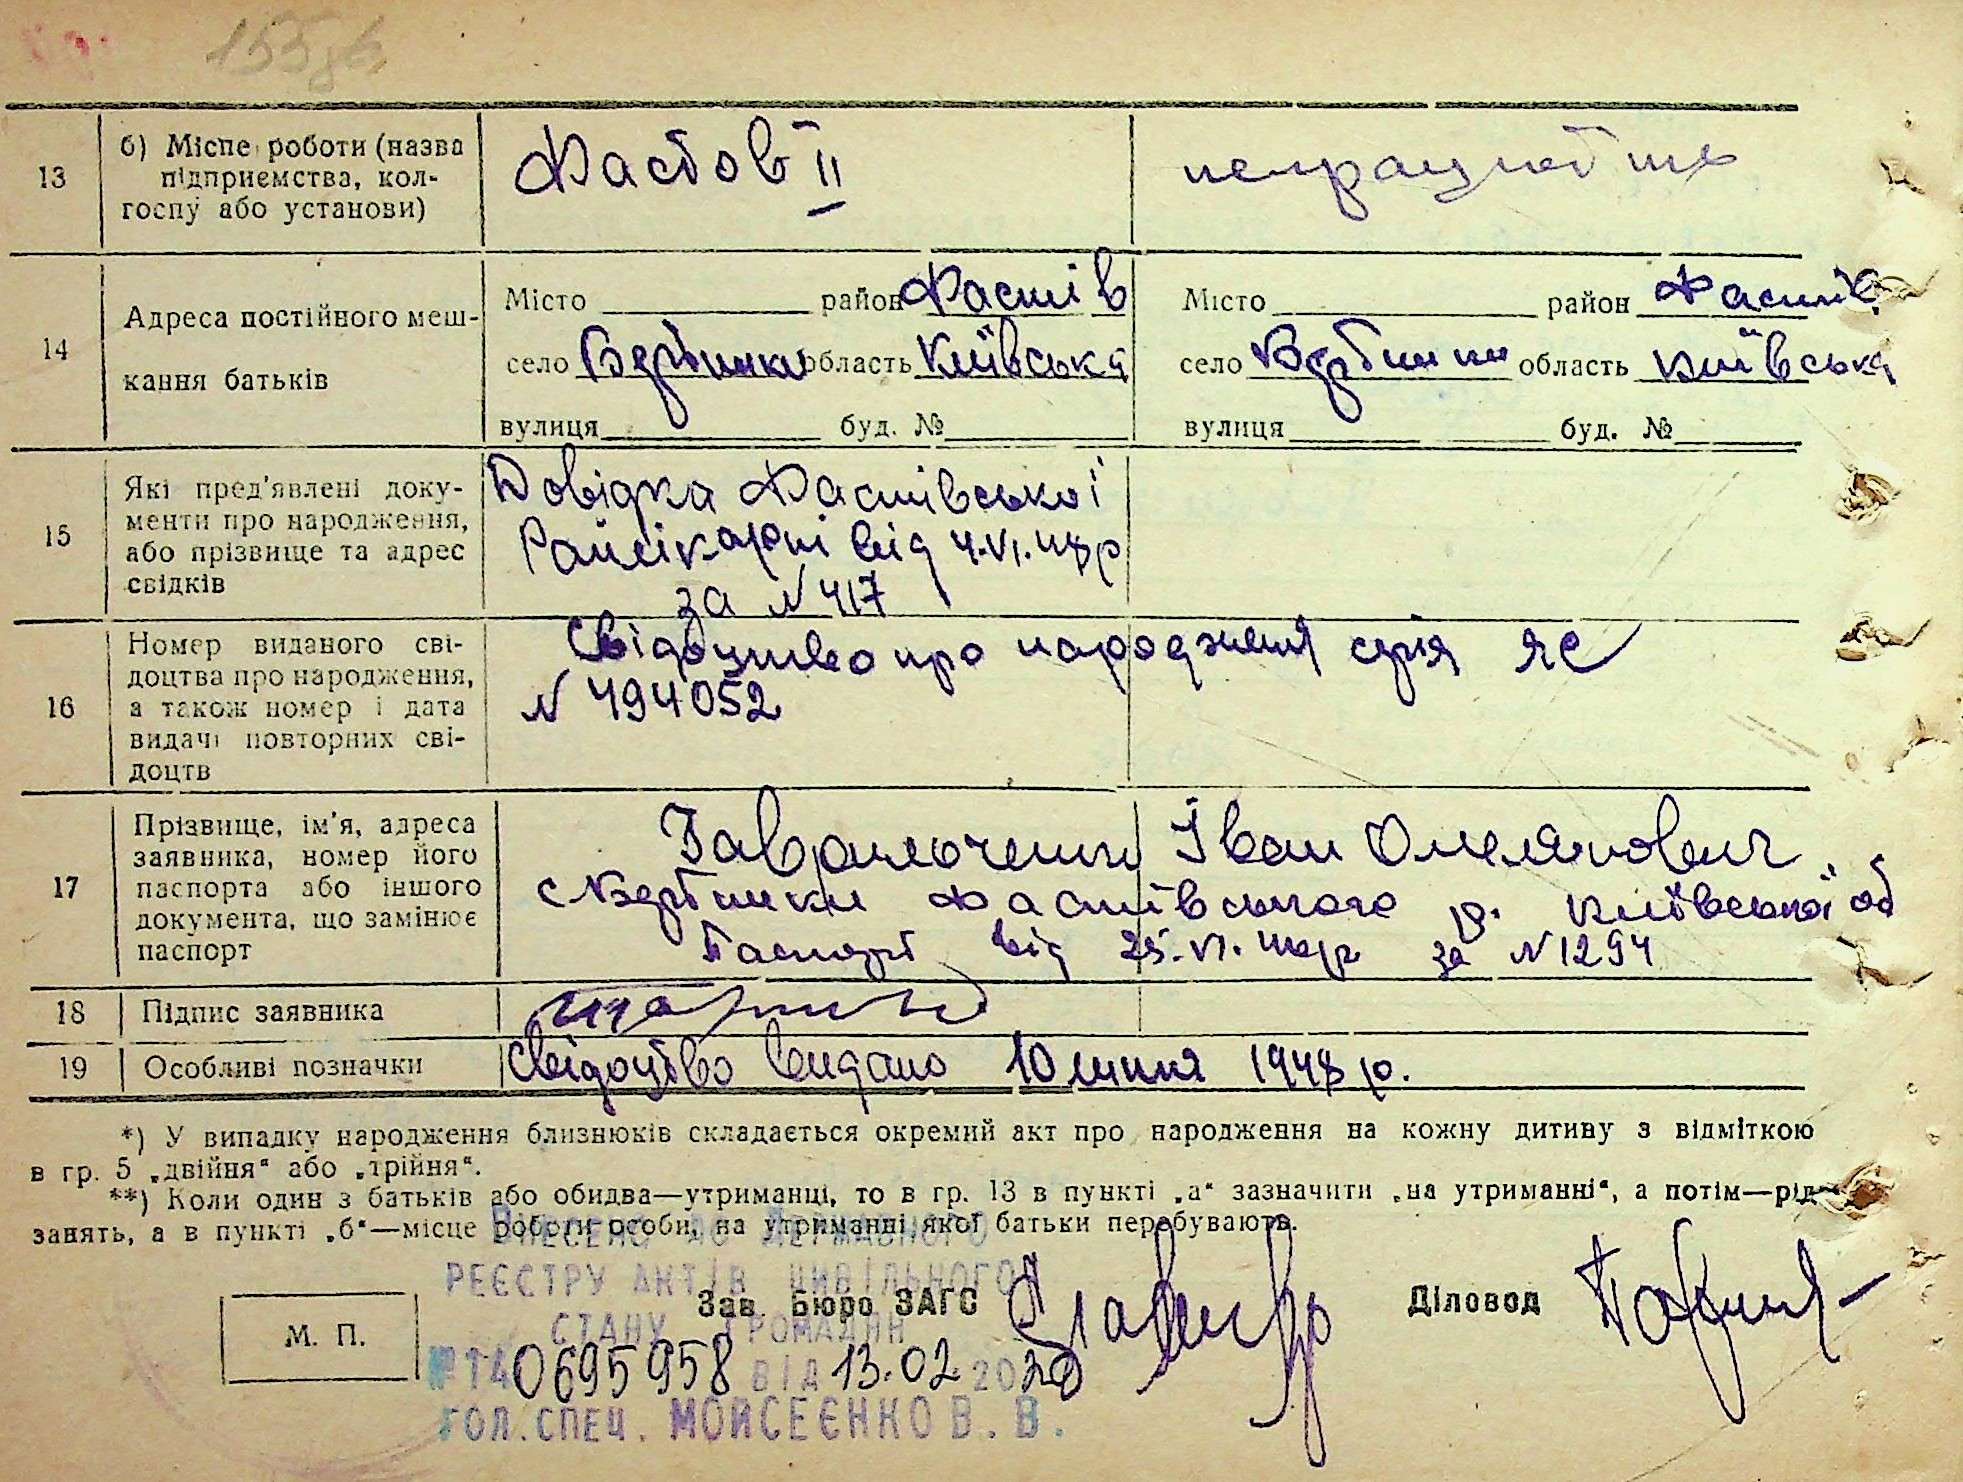 13
б) Місце роботи (назва
підприємства, кол-
госпу або установи)
Фастов II
непрацюют
14
Адреса постійного меш-
кання батьків
Місто район Фастів
село область Київська
вулиця буд. №
Місто район Фастів
село область Київська
вулиця буд. №
15
Які пред'явлені доку-
менти про народження,
або прізвище та адрес
свідків
Довідка Фастівської
від
за N 417
16
Номер виданого сві-
доцтва про народження,
а також номер і дата
видачі повторних сві-
доцтв
Свідоцтво про народження серія ЯС
N 494052
17
Прізвище, ім'я, адреса
заявника, номер його
паспорта або іншого
документа, що замінює
паспорт
Іван Омелянович
с Фастівського р. Київської об
Паспорт від 25.VI. за N 1294
18
Підпис заявника
19
Особливі позначки
Свідоцтво видано 10 липня 1948 р.
*) У випадку народження близнюків складається окремий акт про народження на кожну дитину з відміткою
в гр. 5 „двійня“ або „трійня“.
**) Коли один з батьків або обидва—утриманці, то в гр. 13 в пункті „а“ зазначити „на утриманні“, а потім—рід
занять, а в пункті „б“—місце роботи особи, на утриманні якої батьки перебувають.
ВНЕСЕНО ДО ДЕРЖАВНОГО
РЕЄСТРУ АКТІВ ЦИВІЛЬНОГО
СТАНУ ГРОМАДЯН
Зав. Бюро ЗАГС
Діловод
М. П.
№ 140695958 ВІД 13.02 2020
ГОЛ.СПЕЦ. МОЙСЕЄНКО В. В.